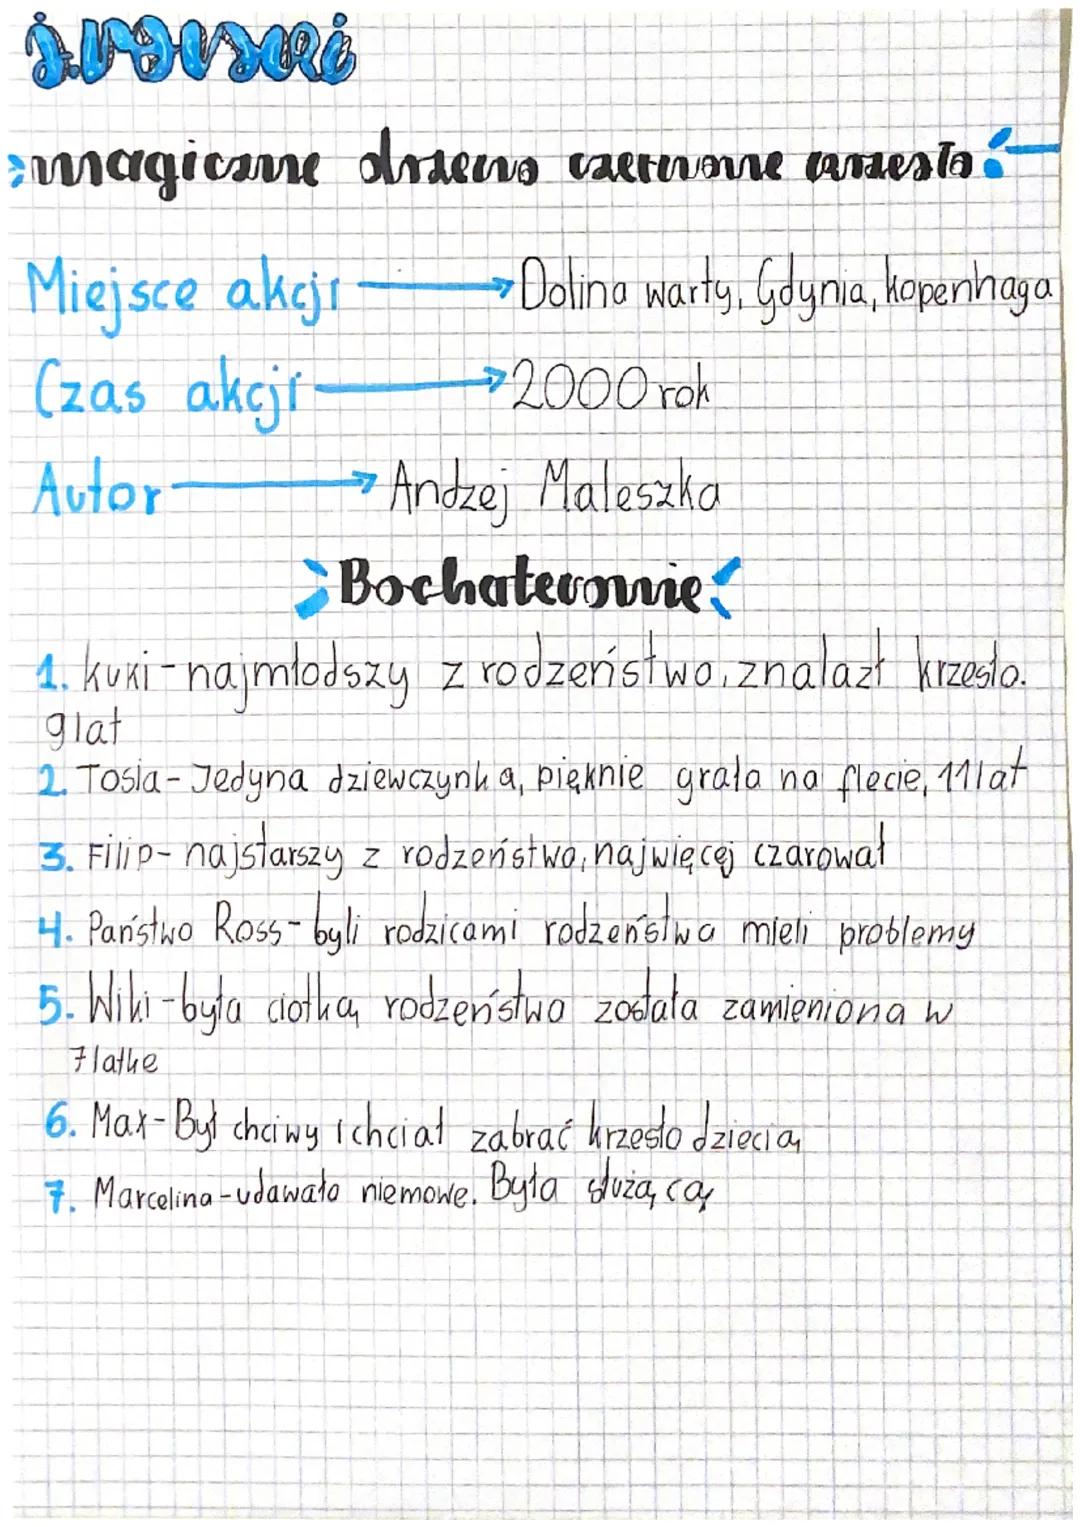 magiczne drzewo czerwone krzesło
Miejsce akcji → Dolina warty, Gdynia, kopenhaga
Czas akcji → 2000 rok
Autor → Andzej Maleszka
Bochaterowie
1. kuki - najmłodszy z rodzeństwa, znalazł krzesło.
9lat
2. Tosia - Jedyna dziewczynka, pięknie grała na flecie, 11lat
3. Filip - najstarszy z rodzeństwa, najwięcej czarował
4. Państwo Ross - byli rodzicami rodzeństwa mieli problemy
5. Wiki - była ciotką rodzeństwa została zamieniona w
7latke
6. Max - Był chciwy i chciał zabrać krzesło dziecią
7. Marcelina - udawała niemowe. Była służącą